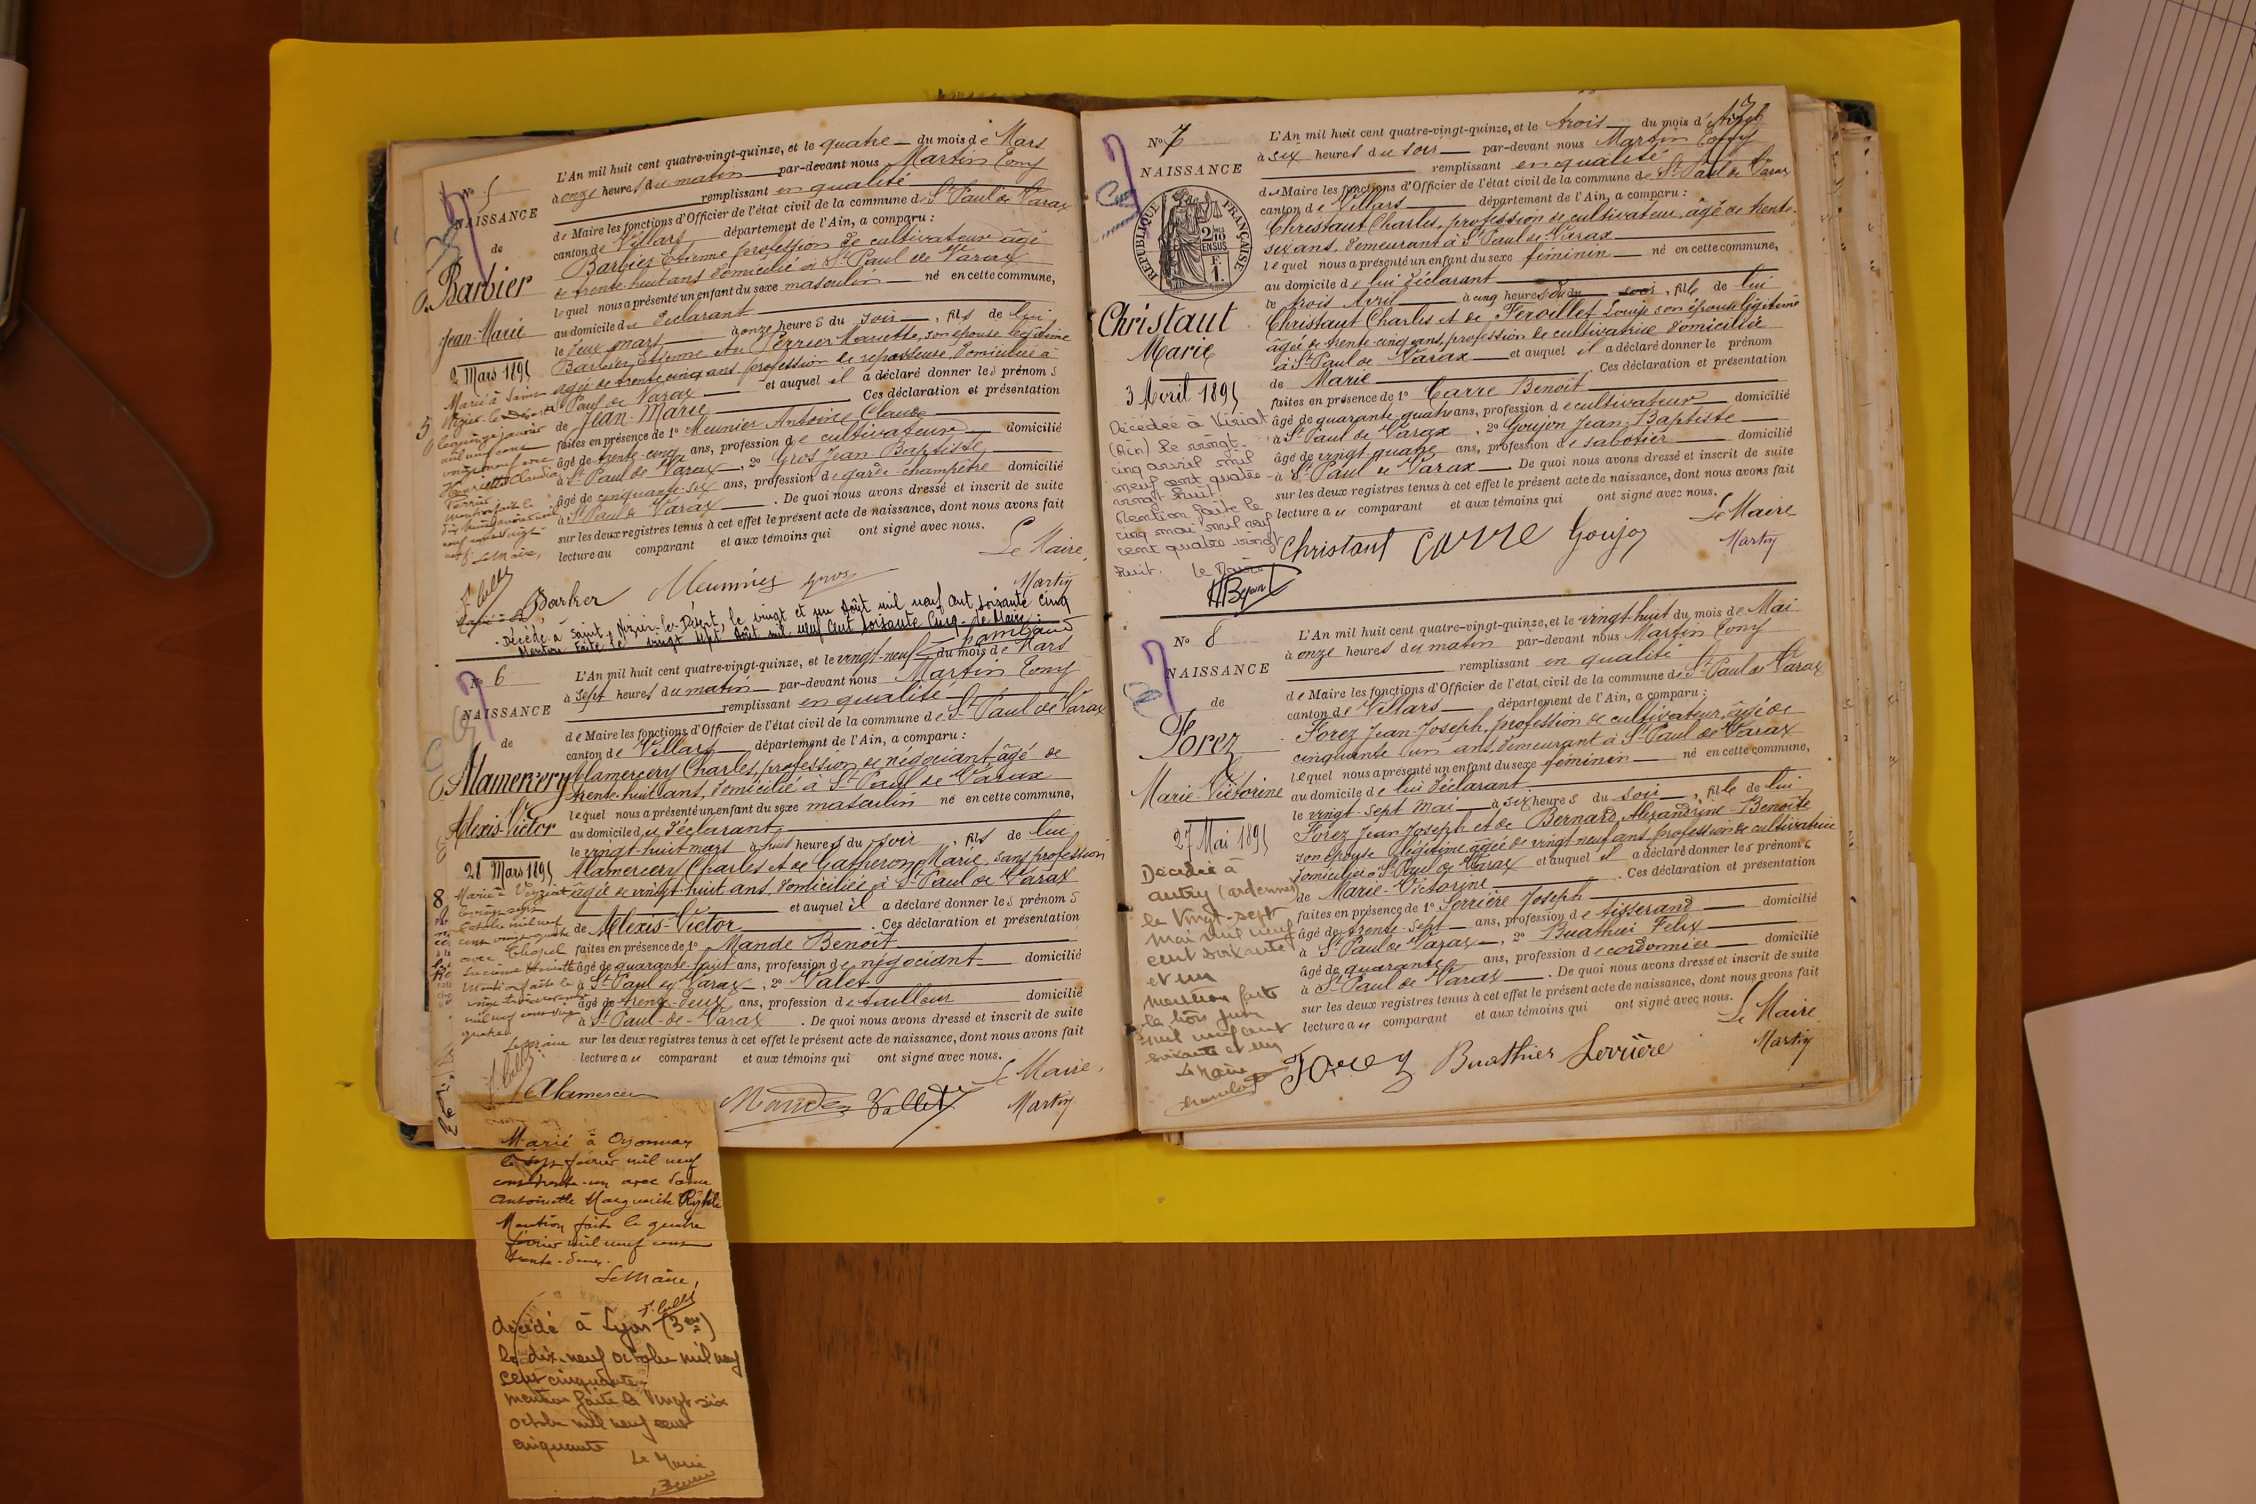 No 5
NAISSANCE
de
Barbier
Jean-Marie
2 Mars 1895
Marié à Saint
Nizier le Désert
le quinze janvier
mil neuf cent
L'An mil huit cent quatre-vingt-quinze, et le quatre du mois de Mars
à onze heures du matin par-devant nous Martin Tony
remplissant en qualité
de Maire les fonctions d'Officier de l'état civil de la commune de St Paul de Varax
canton de Villars département de l'Ain, a comparu :
Barbier Etienne profession de cultivateur âgé
de trente huit ans domicilié à St Paul de Varax
lequel nous a présenté un enfant du sexe masculin né en cette commune,
au domicile du déclarant
le deux mars à onze heures du soir, fils de lui
Barbier Etienne et de Perrier Mariette, son épouse légitime
âgée de trente cinq ans profession de repasseuse, domiciliée à
St Paul de Varax et auquel il a déclaré donner les prénoms
de Jean-Marie Ces déclaration et présentation
faites en présence de 1º Meunier Antoine Claude
âgé de trente-cinq ans, profession de cultivateur domicilié
à St Paul de Varax, 2º Gros Jean Baptiste
âgé de cinquante-six ans, profession de garde-champêtre domicilié
à St Paul de Varax. De quoi nous avons dressé et inscrit de suite
sur les deux registres tenus à cet effet le présent acte de naissance, dont nous avons fait
lecture au comparant et aux témoins qui ont signé avec nous.
Le Maire
Barbier Meunier Gros Martin
Décédé à Saint-Nizier-le-Désert, le vingt et un août mil neuf cent soixante cinq
Mention faite le vingt sept août mil neuf cent soixante cinq - Le Maire :
No 6
NAISSANCE
de
Alamercery
Alexis-Victor
28 Mars 1895
L'An mil huit cent quatre-vingt-quinze, et le vingt-neuf du mois de Mars
à sept heures du matin par-devant nous Martin Tony
remplissant en qualité
de Maire les fonctions d'Officier de l'état civil de la commune de St Paul de Varax
canton de Villars département de l'Ain, a comparu :
Alamercery Charles, profession de négociant âgé de
trente-huit ans, domicilié à St Paul de Varax
lequel nous a présenté un enfant du sexe masculin né en cette commune,
au domicile du déclarant
le vingt-huit mars à huit heures du soir, fils de lui
Alamercery Charles et de Catheron Marie, sans profession
âgée de vingt-huit ans, domiciliée à St Paul de Varax
et auquel il a déclaré donner les prénoms
de Alexis-Victor. Ces déclaration et présentation
faites en présence de 1º Mande Benoît
âgé de quarante-huit ans, profession de négociant domicilié
à St Paul de Varax, 2º Valet
âgé de trente-deux ans, profession de tailleur domicilié
à St Paul-de-Varax. De quoi nous avons dressé et inscrit de suite
sur les deux registres tenus à cet effet le présent acte de naissance, dont nous avons fait
lecture au comparant et aux témoins qui ont signé avec nous.
Le Maire,
Alamercery Mande Vallet Martin
Marié à Oyonnax
le sept février mil neuf
cent trente-un avec
Antoinette Marguerite
Mention faite le quatre
février mil neuf cent
trente-deux.
Le Maire,
décédé à Lyon (3e)
le dix-neuf octobre mil neuf
cent cinquante
mention faite le vingt-six
octobre mil neuf cent
cinquante
Le Maire
No 7
NAISSANCE
RÉPUBLIQUE FRANÇAISE
2/10 EN SUS
Christaut
Marie
3 Avril 1895
Décédée à Viriat
(Ain) le vingt-
cinq avril mil
neuf cent quatre-
vingt huit.
Mention faite le
cinq mai mil neuf
cent quatre vingt
huit. Le Maire
L'An mil huit cent quatre-vingt-quinze, et le trois du mois d'Avril
à six heures du soir par-devant nous Martin Tony
remplissant en qualité
de Maire les fonctions d'Officier de l'état civil de la commune de St Paul de Varax
canton de Villars département de l'Ain, a comparu :
Christaut Charles, profession de cultivateur, âgé de trente-
six ans, demeurant à St Paul de Varax
lequel nous a présenté un enfant du sexe féminin né en cette commune,
au domicile de lui déclarant
le trois Avril à cinq heures du soir, fille de lui
Christaut Charles et de Feroillet Louise son épouse légitime
âgée de trente-cinq ans, profession de cultivatrice domiciliée
à St Paul de Varax et auquel il a déclaré donner le prénom
de Marie Ces déclaration et présentation
faites en présence de 1º Carre Benoit
âgé de quarante-quatre ans, profession de cultivateur domicilié
à St Paul de Varax, 2º Goujon Jean-Baptiste
âgé de vingt-quatre ans, profession de sabotier domicilié
à St Paul de Varax. De quoi nous avons dressé et inscrit de suite
sur les deux registres tenus à cet effet le présent acte de naissance, dont nous avons fait
lecture au comparant et aux témoins qui ont signé avec nous.
Le Maire
Christaut Carre Goujon Martin
No 8
NAISSANCE
de
Forez
Marie-Victorine
27 Mai 1895
Décédée à
Autry (Ardennes)
le vingt-sept
mai mil neuf
cent soixante
et un
mention faite
le trois juin
mil neuf cent
soixante et un
Le Maire
L'An mil huit cent quatre-vingt-quinze, et le vingt-huit du mois de Mai
à onze heures du matin par-devant nous Martin Tony
remplissant en qualité
de Maire les fonctions d'Officier de l'état civil de la commune de St Paul de Varax
canton de Villars département de l'Ain, a comparu :
Forez Jean-Joseph, profession de cultivateur, âgé de
cinquante un ans, demeurant à St Paul de Varax
lequel nous a présenté un enfant du sexe féminin né en cette commune,
au domicile de lui déclarant
le vingt-sept mai à six heures du soir, fille de lui
Forez Jean-Joseph et de Bernard Alexandrine-Benoîte
son épouse légitime âgée de vingt neuf ans, profession de cultivatrice
domiciliée à St Paul de Varax et auquel il a déclaré donner les prénoms
de Marie-Victorine. Ces déclaration et présentation
faites en présence de 1º Serrière Joseph
âgé de trente-sept ans, profession de tisserand domicilié
à St Paul de Varax, 2º Buathier Felix
âgé de quarante ans, profession de cordonnier domicilié
à St Paul de Varax. De quoi nous avons dressé et inscrit de suite
sur les deux registres tenus à cet effet le présent acte de naissance, dont nous avons fait
lecture au comparant et aux témoins qui ont signé avec nous.
Le Maire
Forez Buathier Serrière Martin